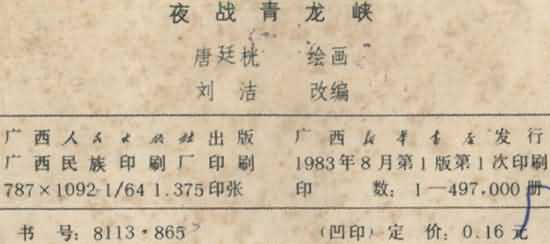 夜战青龙峡
唐廷桄 绘画
刘洁 改编
广西人民出版社出版 广西新华书店发行
广西民族印刷厂印刷 1983年8月第1版第1次印刷
787×1092 1/64 1.375印张 印数：1—497,000册
书号：8113·865 （凹印）定价：0.16元